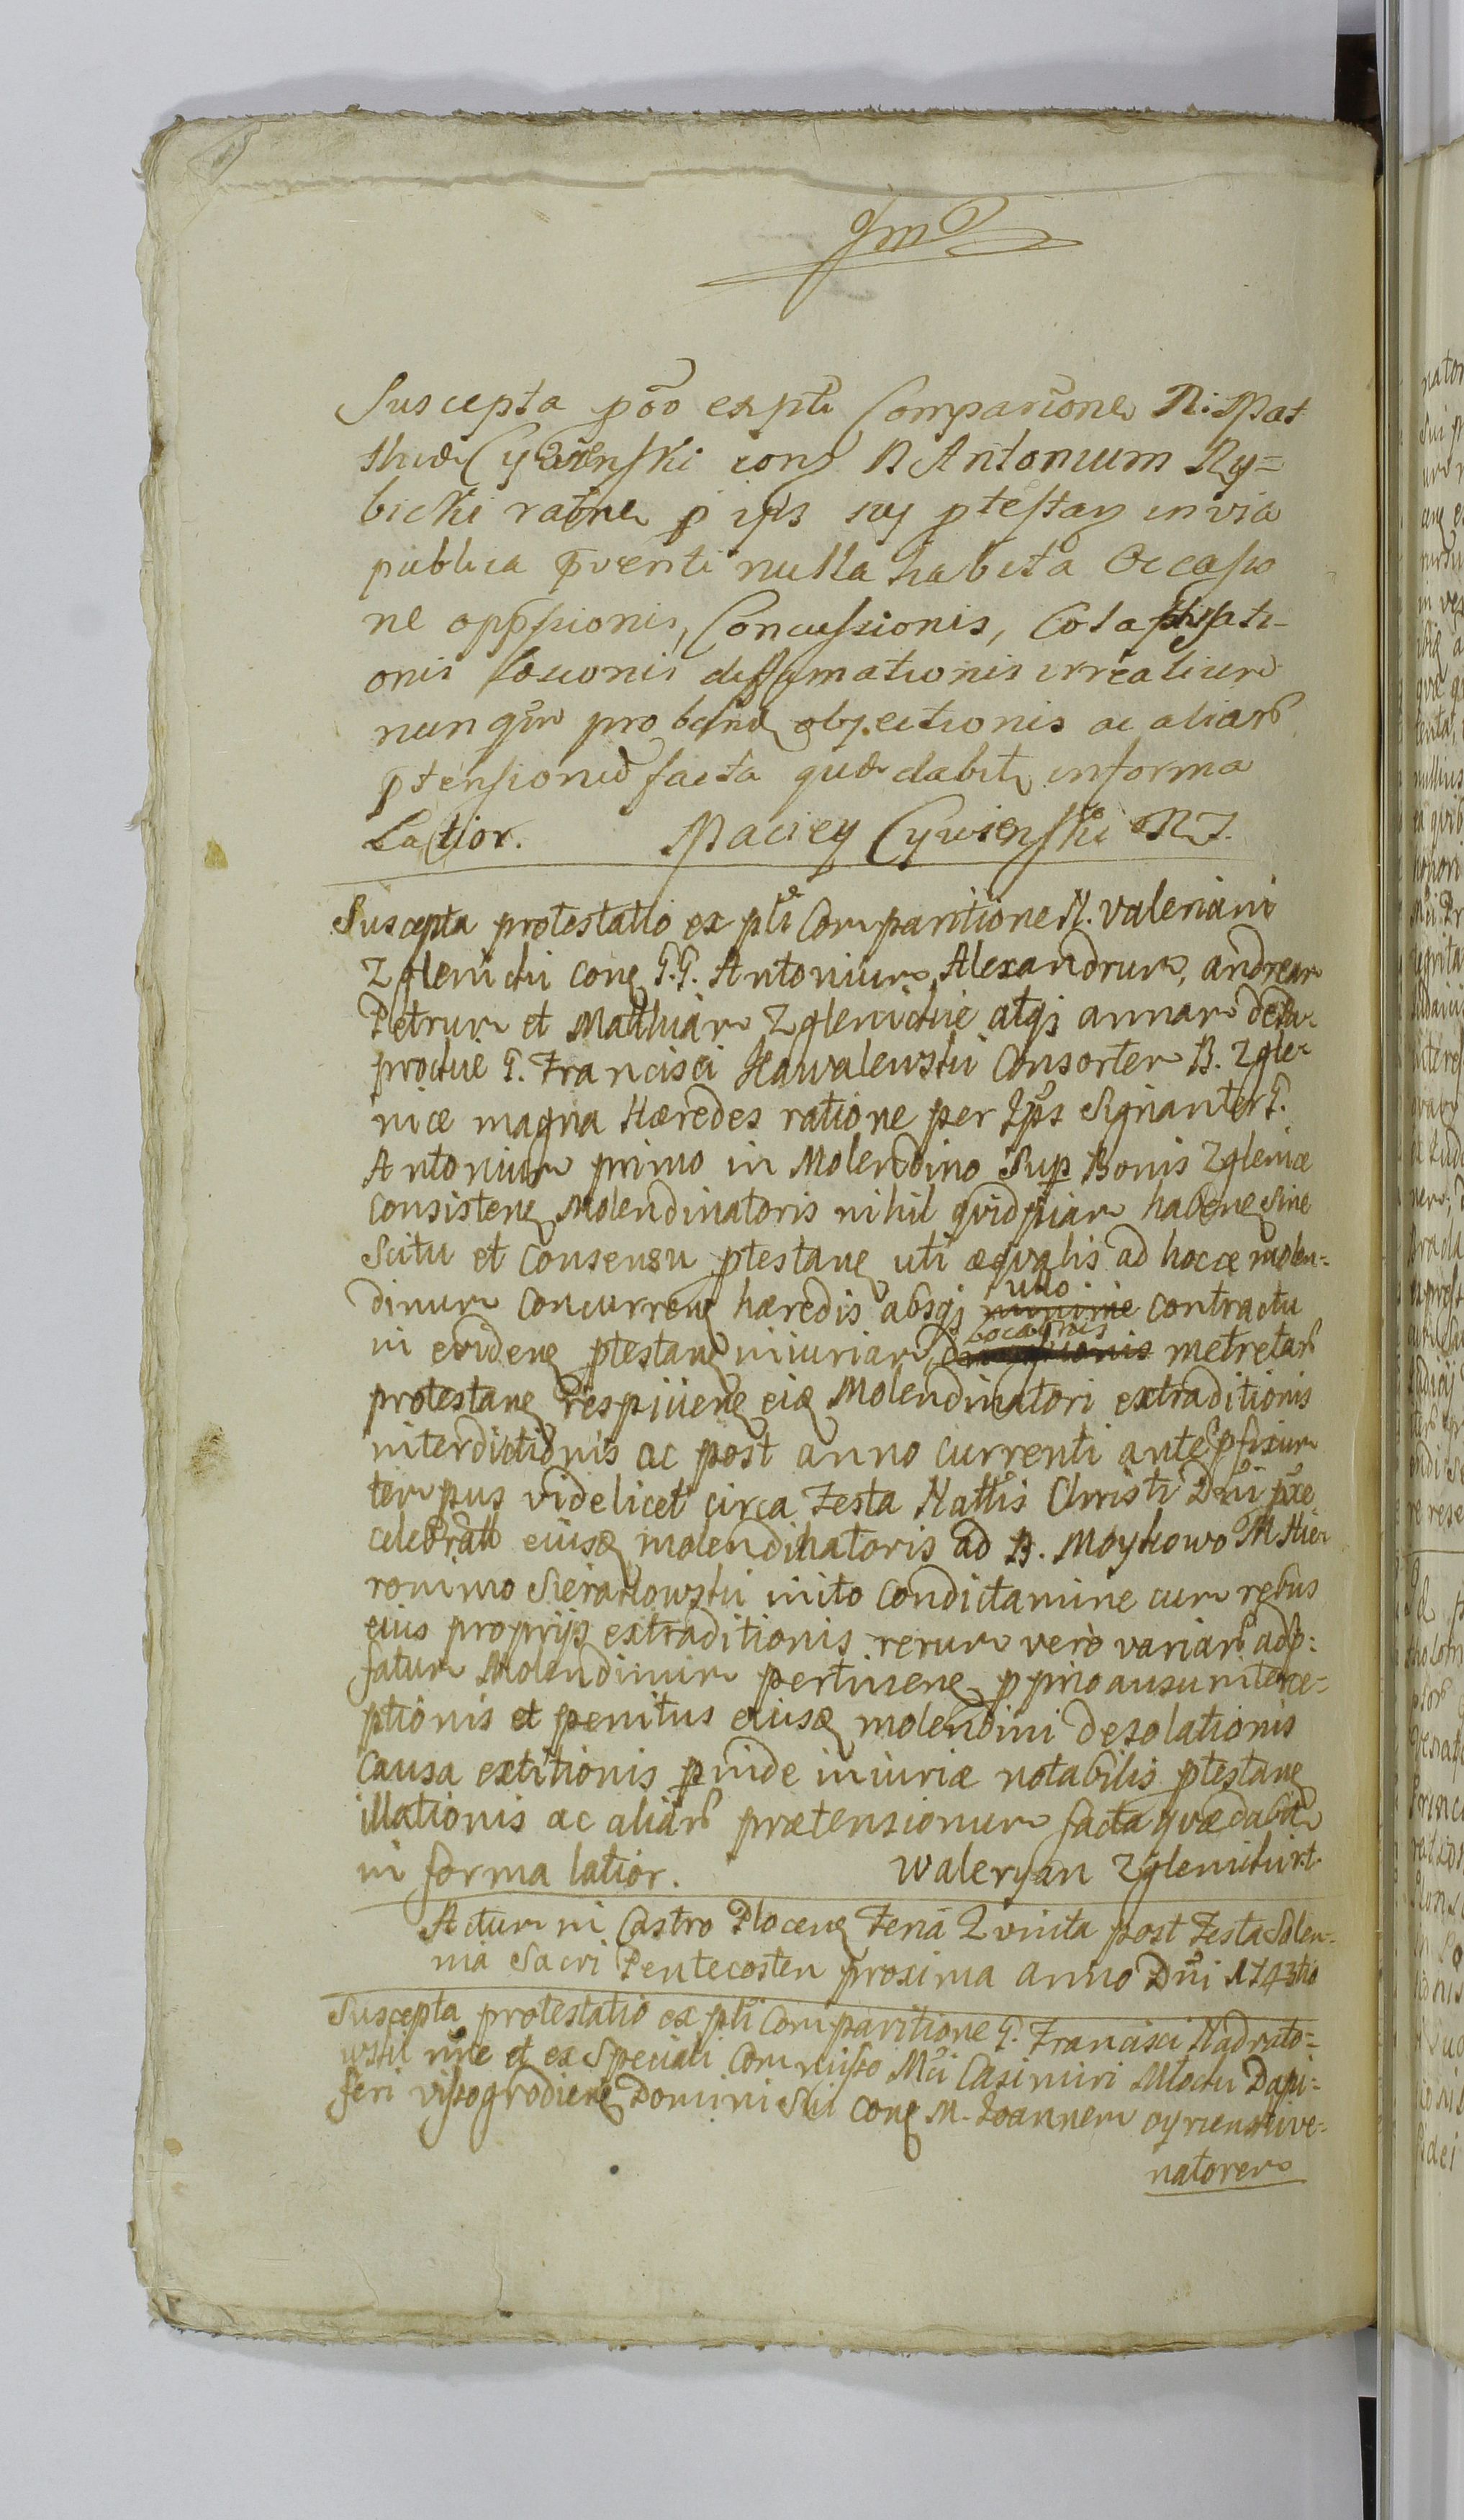 Suscepta ex pti Comparicione N. Mat
thia Cywinski con N Antonium Ry=
bicki racine p ips suy ptestan in via
publica pventi nulla habita Occasio
ne oppsionis, Concussionis, Colaphisati-
onis Lesionis diffamationis
nunqm proband objectionis ac aliar
ptensionu facta quæ dabit in forma
Latior. Maciey Cywienski
Suscepta protestatio ex pti Comparitione N. Valeriani
Zglenicki cong G.G. Antonium, Alexandrum, andream
Petrum et Matthiam Zglenickie atq annam
G. Francisci Kawalewski Consortem B. Zgle-
nice magna Hæredes ratione per Ips Signanter G.
Antonium primo in Molendino Sup Bonis Zglenice
consisten Molendinatoris nihil qvidpiam haben Sine
Scitu et Consensu ptestan uti æqvalis ad hocce molen=
dinum concurren hæredis absq ullo contractu
in eviden ptestan iniuriam, metretar
protestan respicien eid Molendinatori extraditionis
interdictionis ac post anno currenti ante pfixum
tempus videlicet circa Festa Natlis Christi Dni
celebrati eiusd molendinatoris ad B. Moykowo M Hie-
ronimo Sierakowski inito condictamine cum rebus
eius proprijs extraditionis rerum verò variar adp=
fatum Molendinum pertinen pprio ausu interce=
ptionis et penitus eiusd molendini desolationis
causa extitionis pinde iniuriæ notabilis ptestan
illationis ac aliar prætensionum facta qvæ dabit
in forma latior. Waleryan Zglenicki
Actum in Castro Plocen Feria Qvinta post Festa Solen-
nia Sacri Pentecosten proxima anno Dni 1743tio
Suscepta protestatio ex pti Comparitione G. Francisci Nadrato=
wski nne et ex Speciali Commisso Mci Casimiri Mlocki Dapi=
feri vissogrodien Domini Sui cong M. Joannem ve=
natorem